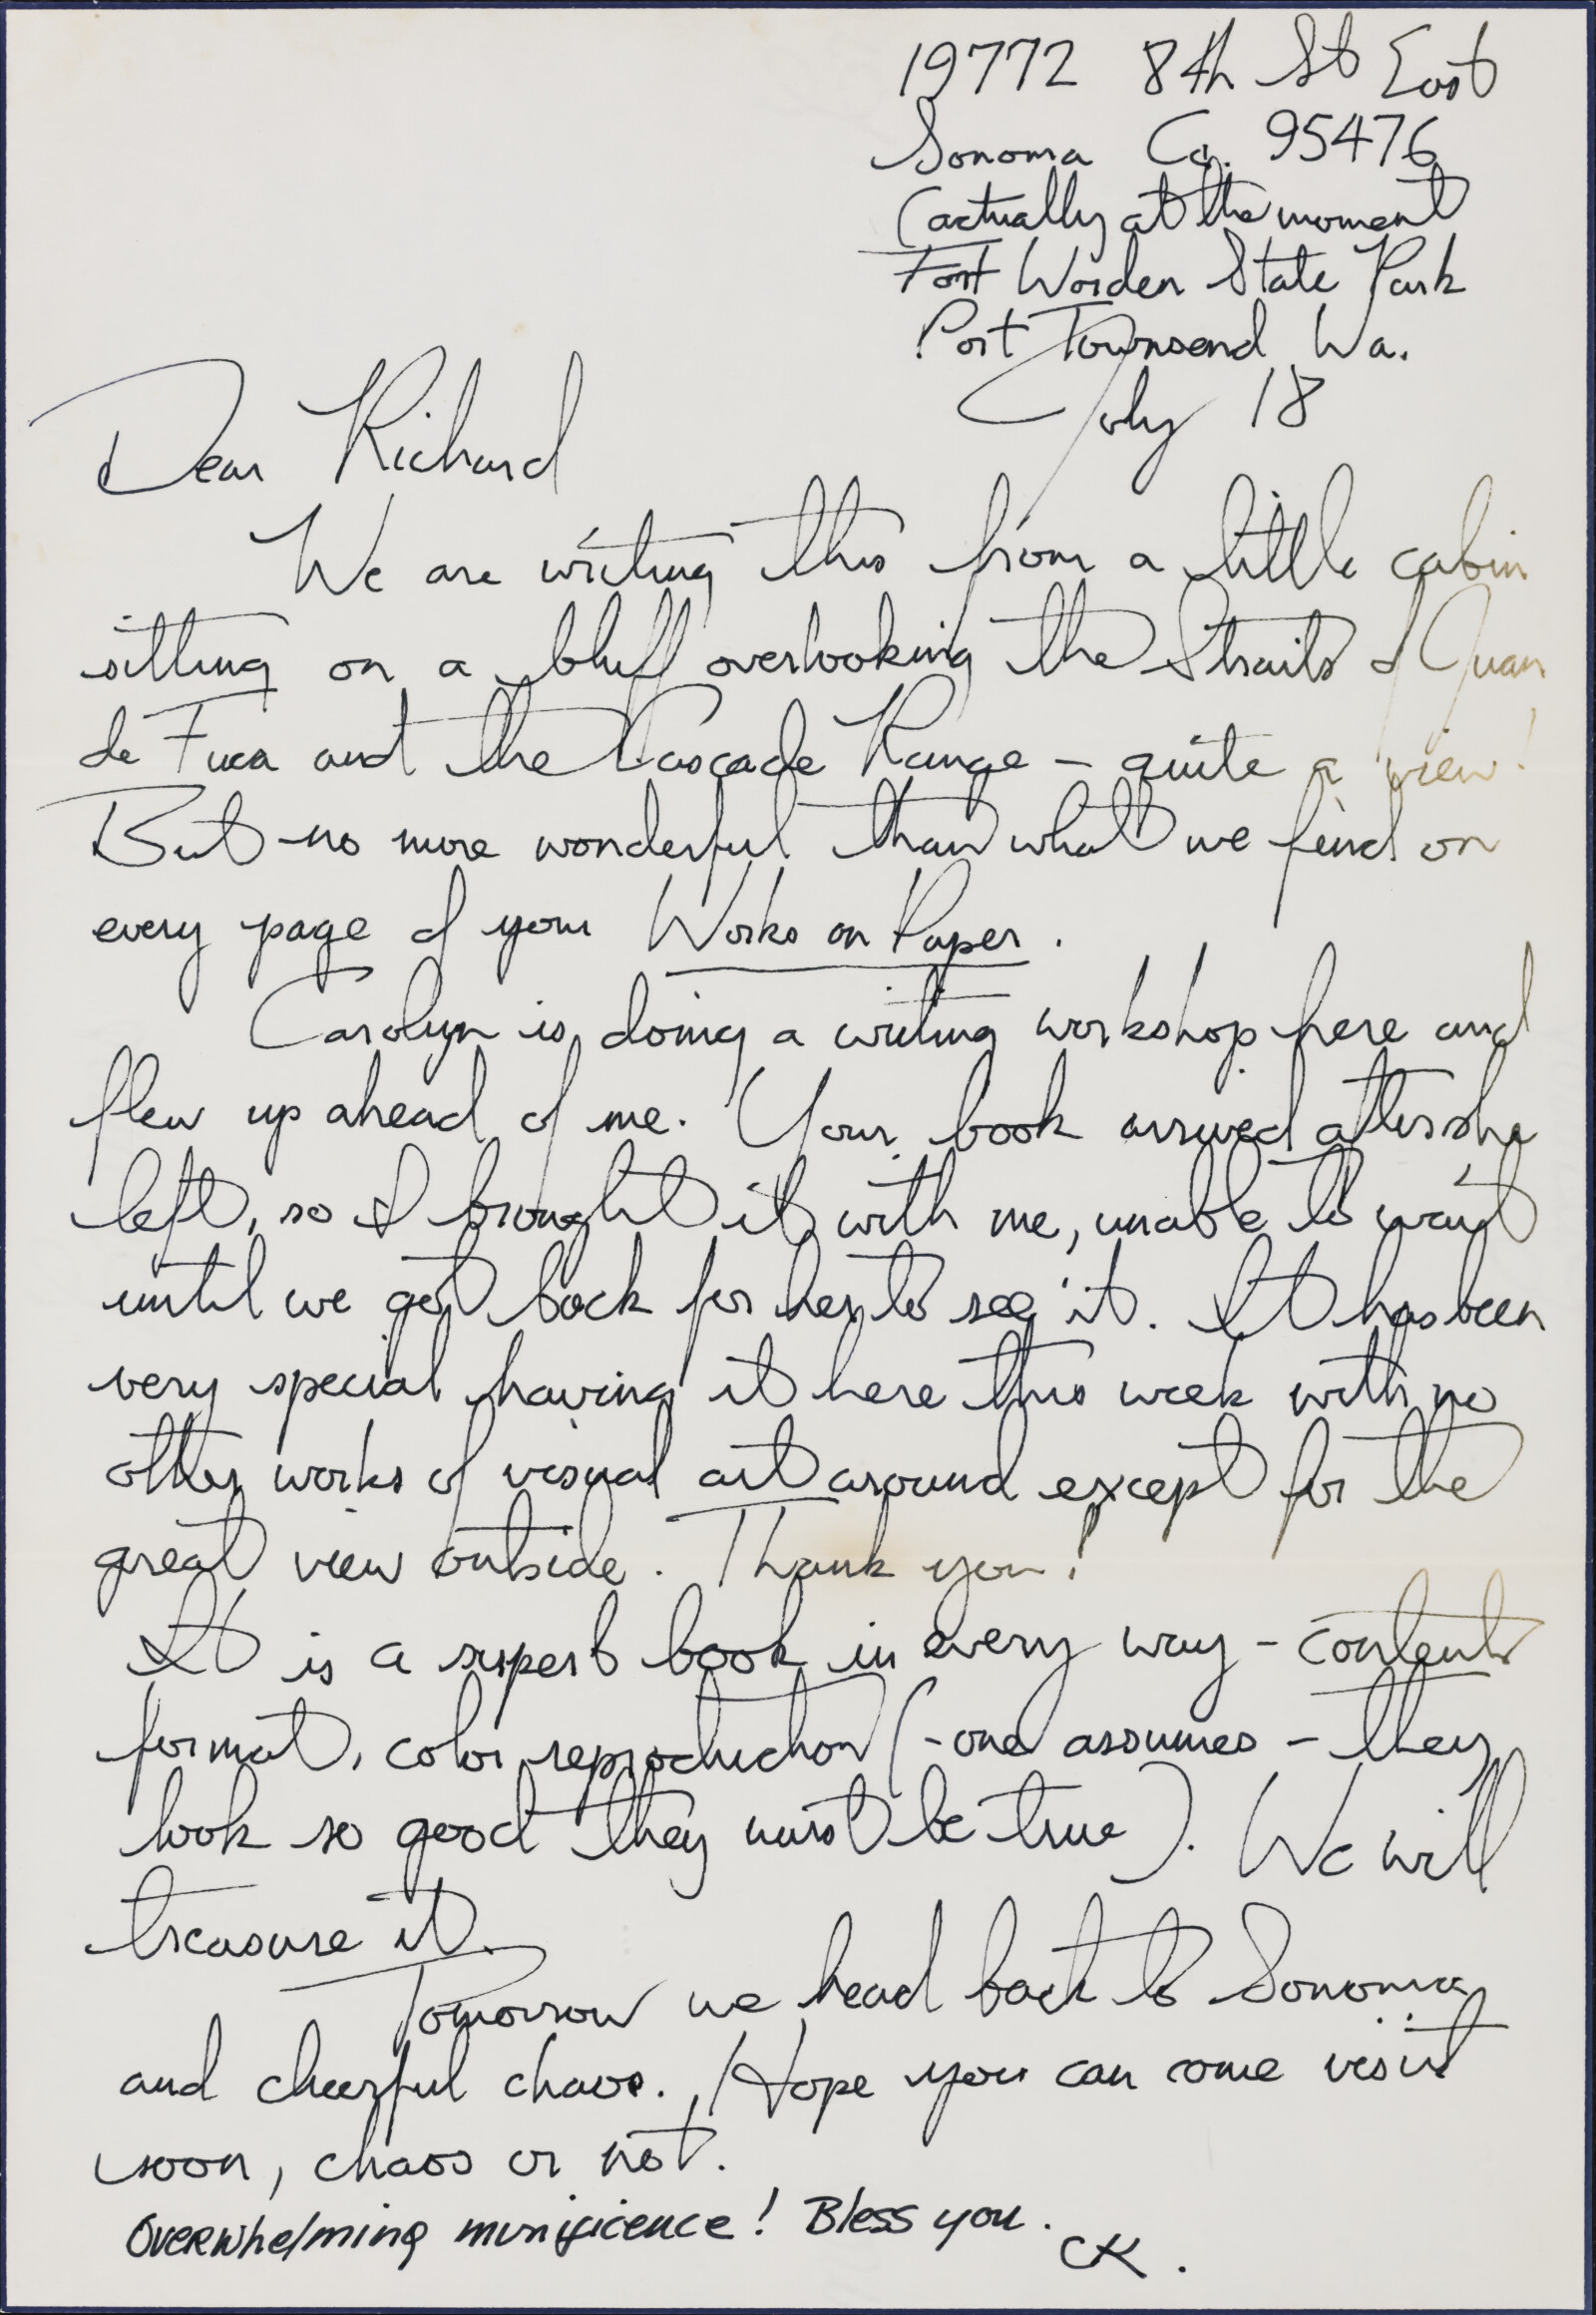 19772 8th St East
Sonoma Ca. 95476
(actually at the moment
Fort Worden State Park
Port Townsend, Wa.
July 18
Dear Richard
We are writing this from a little cabin
sitting on a bluff overlooking the Straits of Juan
de Fuca and the Cascade Range – quite a view!
But no more wonderful than what we find on
every page of your Works on Paper.
Carolyn is doing a writing workshop here and
flew up ahead of me. Your book arrived after she
left, so I brought it with me, unable to wait
until we got back for her to see it. It has been
very special having it here this week with no
other works of visual art around except for the
great view outside. Thank you!
It is a superb book in every way – contents
format, color reproduction (-one assumes – they
look so good they must be true). We will
treasure it.
Tomorrow we head back to Sonoma
and cheerful chaos. Hope you can come visit
soon, chaos or not.
Overwhelming munificence! Bless you.
CK.